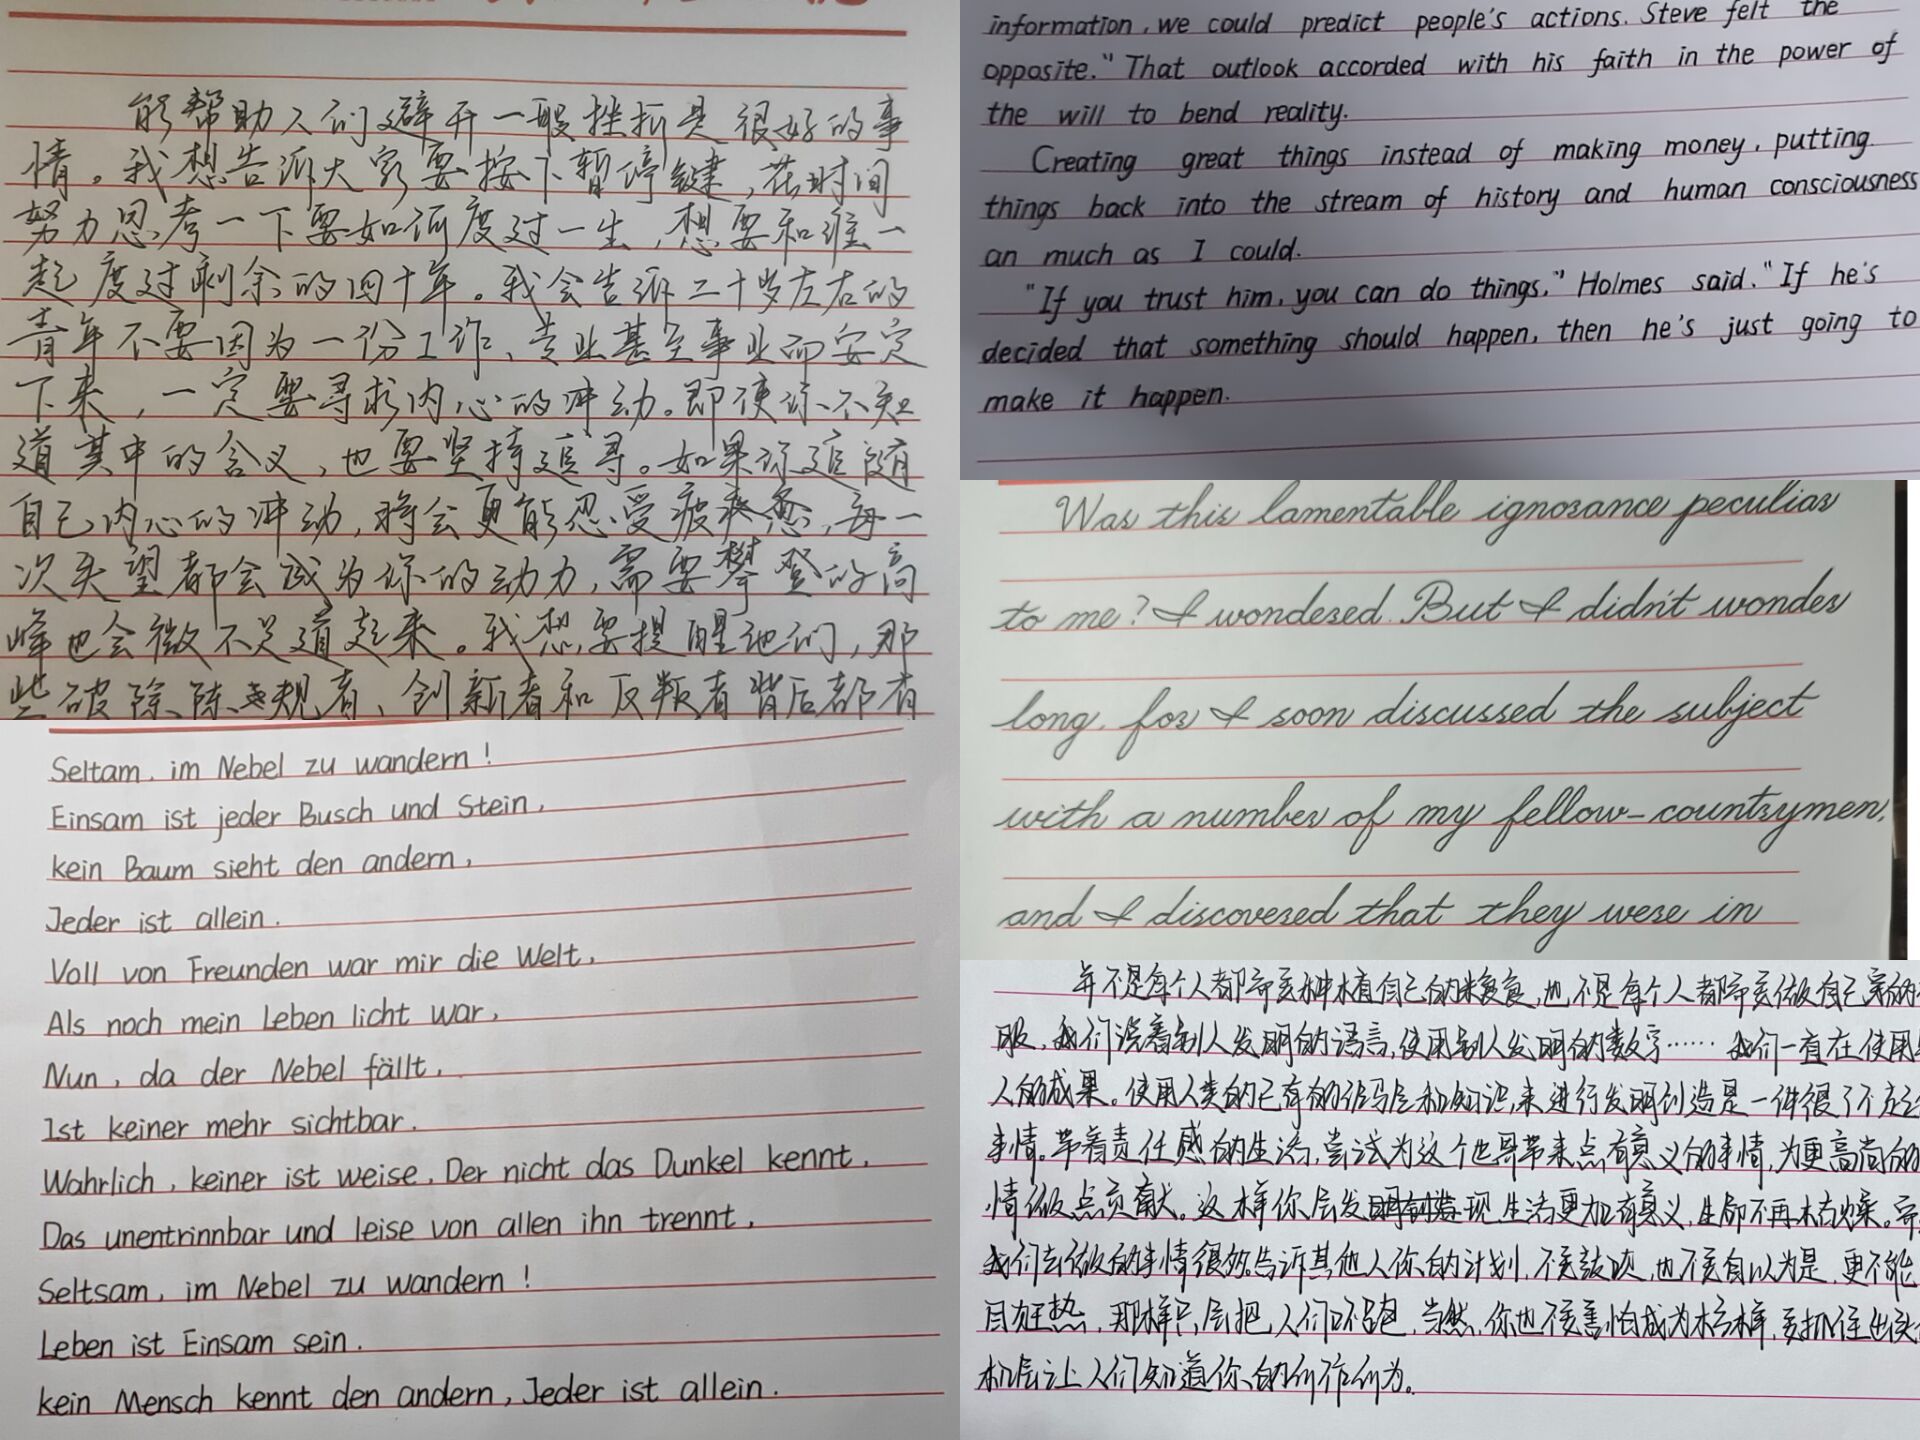 能帮助人们避开一般挫折是很好的事
情。我想告诉大家要按下暂停键，花时间
努力思考一下要如何度过一生，想要和谁一
起度过剩余的四十年。我会告诉二十岁左右的
青年不要因为一份工作、专业甚至事业而安定
下来，一定要寻求内心的冲动。即使你不知
道其中的含义，也要坚持追寻。如果你追随
自己内心的冲动，将会更能忍受疲惫，每一
次失望都会成为你的动力，需要攀登的高
峰也会微不足道起来。我想要提醒他们，那
些破除陈规者、创新者和反叛者背后都有
Seltam, im Nebel zu wandern!
Einsam ist jeder Busch und Stein,
kein Baum sieht den andern,
Jeder ist allein.
Voll von Freunden war mir die Welt,
Als noch mein Leben licht war,
Nun, da der Nebel fällt,
Ist keiner mehr sichtbar.
Wahrlich, keiner ist weise, Der nicht das Dunkel kennt,
Das unentrinnbar und leise von allen ihn trennt,
Seltsam, im Nebel zu wandern!
Leben ist Einsam sein.
kein Mensch kennt den andern, Jeder ist allein.
information, we could predict people's actions. Steve felt the
opposite." That outlook accorded with his faith in the power of
the will to bend reality.
Creating great things instead of making money, putting
things back into the stream of history and human consciousness
an much as I could.
"If you trust him, you can do things," Holmes said. "If he's
decided that something should happen, then he's just going to
make it happen.
Was this lamentable ignorance peculiar
to me? I wondered. But I didn't wonder
long, for I soon discussed the subject
with a number of my fellow-countrymen,
and I discovered that they were in
并不是每个人都需要种植自己的粮食，也不是每个人都需要做自己穿的
服，我们说着别人发明的语言，使用别人发明的数字……我们一直在使用
人的成果。使用人类的已有的经验和知识，来进行发明创造是一件很了不起
事情。带着责任感的生活，尝试为这个世界带来点有意义的事情，为更高尚的
情做点贡献。这样你会发现生活更加有意义，生命不再枯燥。需
我们去做的事情很多。告诉其他人你的计划，不要鼓吹，也不要自以为是，更不能
目狂热，那样只会把人们吓跑，当然，你也不要害怕成为榜样，要抓住出头
机会让人们知道你的所作所为。